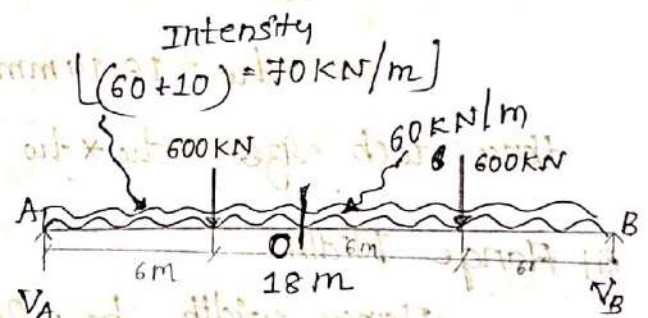 Intensity
[(60+10) = 70 KN/m]
600KN
60 KN/m
600KN
A
B
O
6m
6m
6m
18 m
V_A
V_B